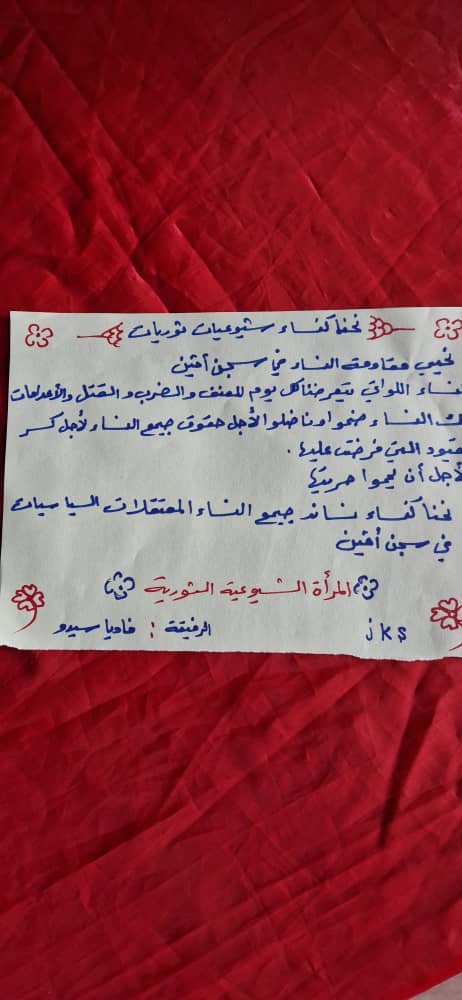 نحنا كنساء شيوعيات ثوريات
نحيي مقاومة النساء في سجن أفين
النساء اللواتي يتعرضنا كل يوم للعنف والضرب و القتل والأعدامات
النساء ضحوا وناضلوا لأجل حقوق جميع النساء لأجل كسر
القيود التي فرضت عليها .
لأجل أن يحموا حريتها
نحنا كنساء نساند جميع النساء المعتقلات السياسيات
في سجن أفين
المرأة الشيوعية الثورية
الرفيقة : فاديا سيدو
jks